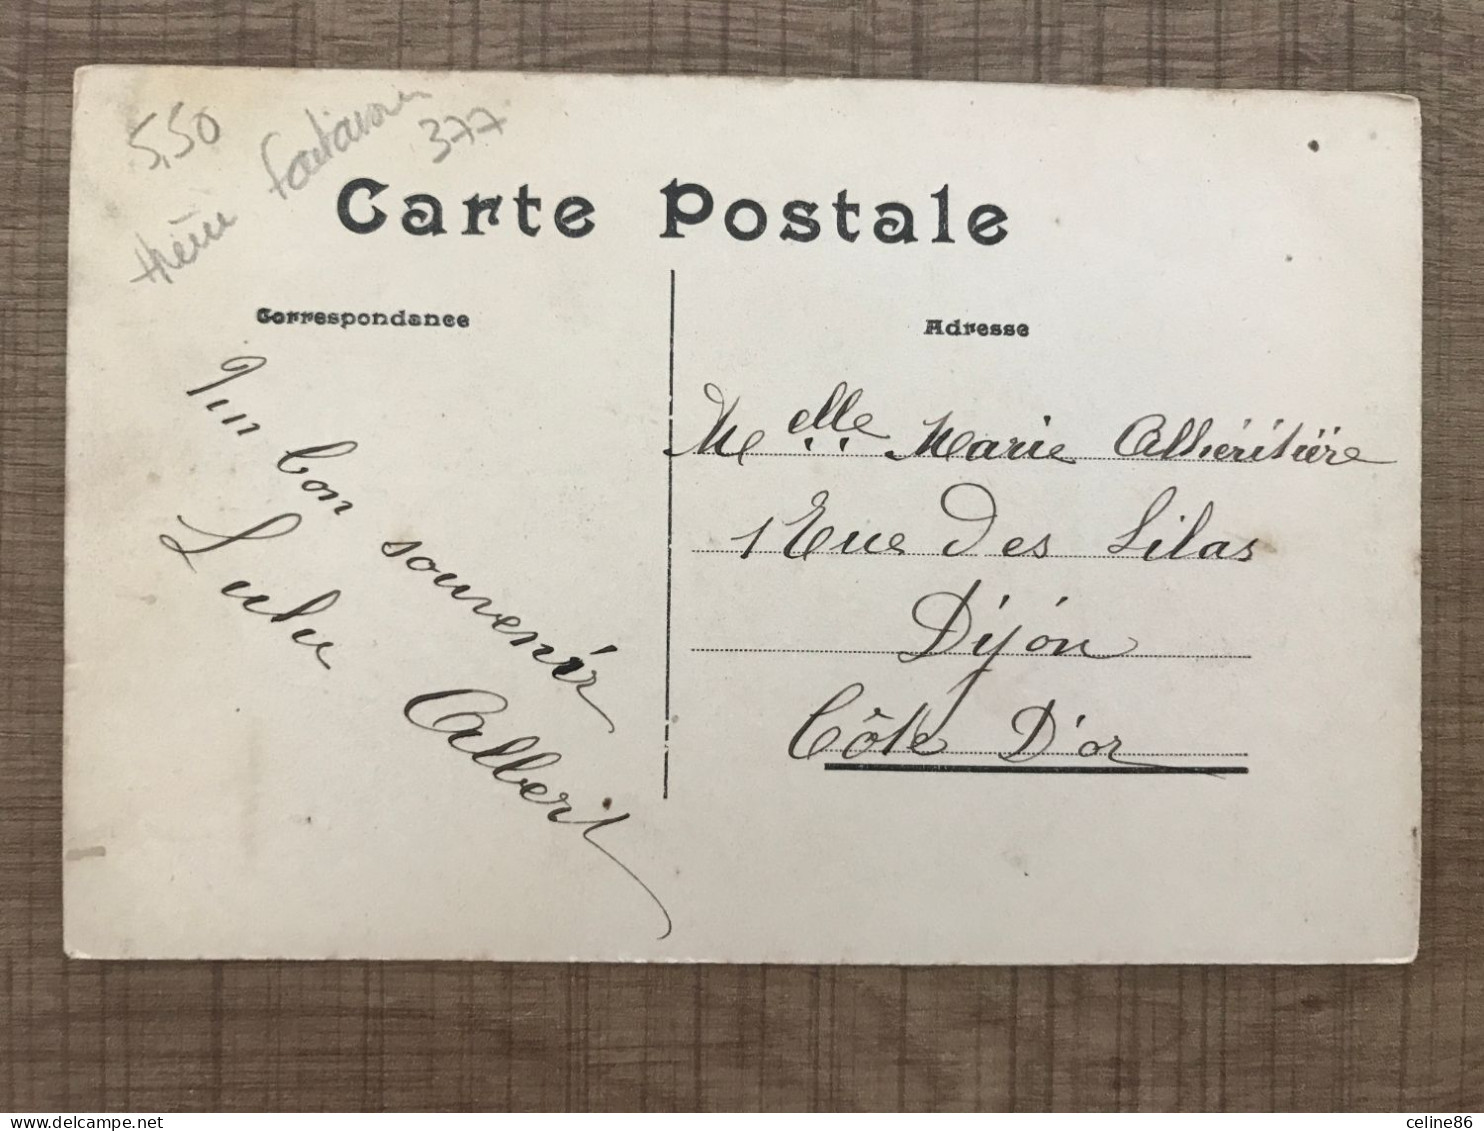 5,50
377
Carte Postale
Correspondance
Un bon souvenir
Lulu Albert
Adresse
Melle Marie
1 Rue Des Lilas
Dijon
Côte D'or
celine86